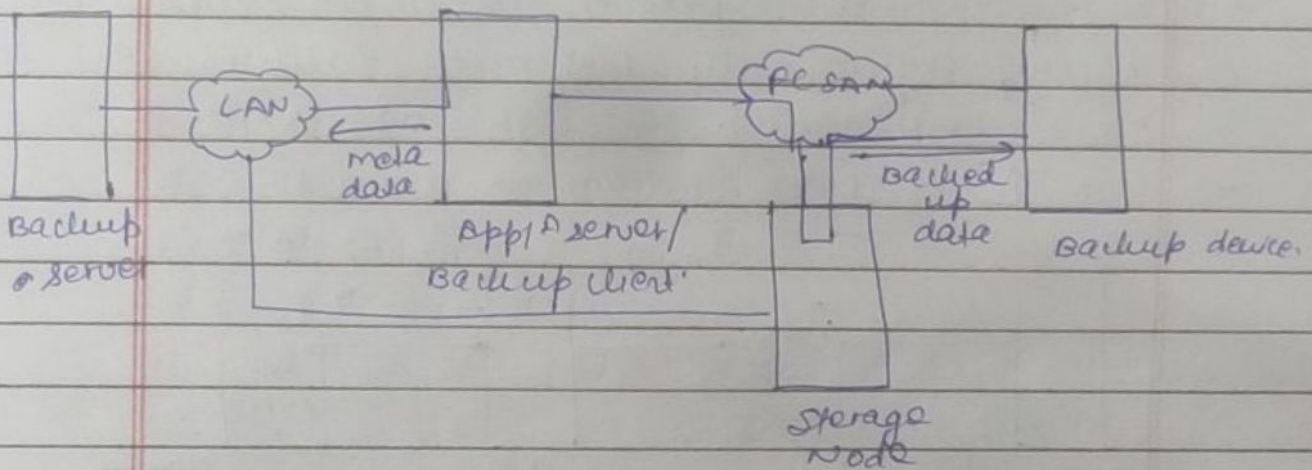 LAN
FC SAN
meta
data
Backed
up
data
Backup
server
Appl^n server/
Backup client
Backup device.
Storage
Node